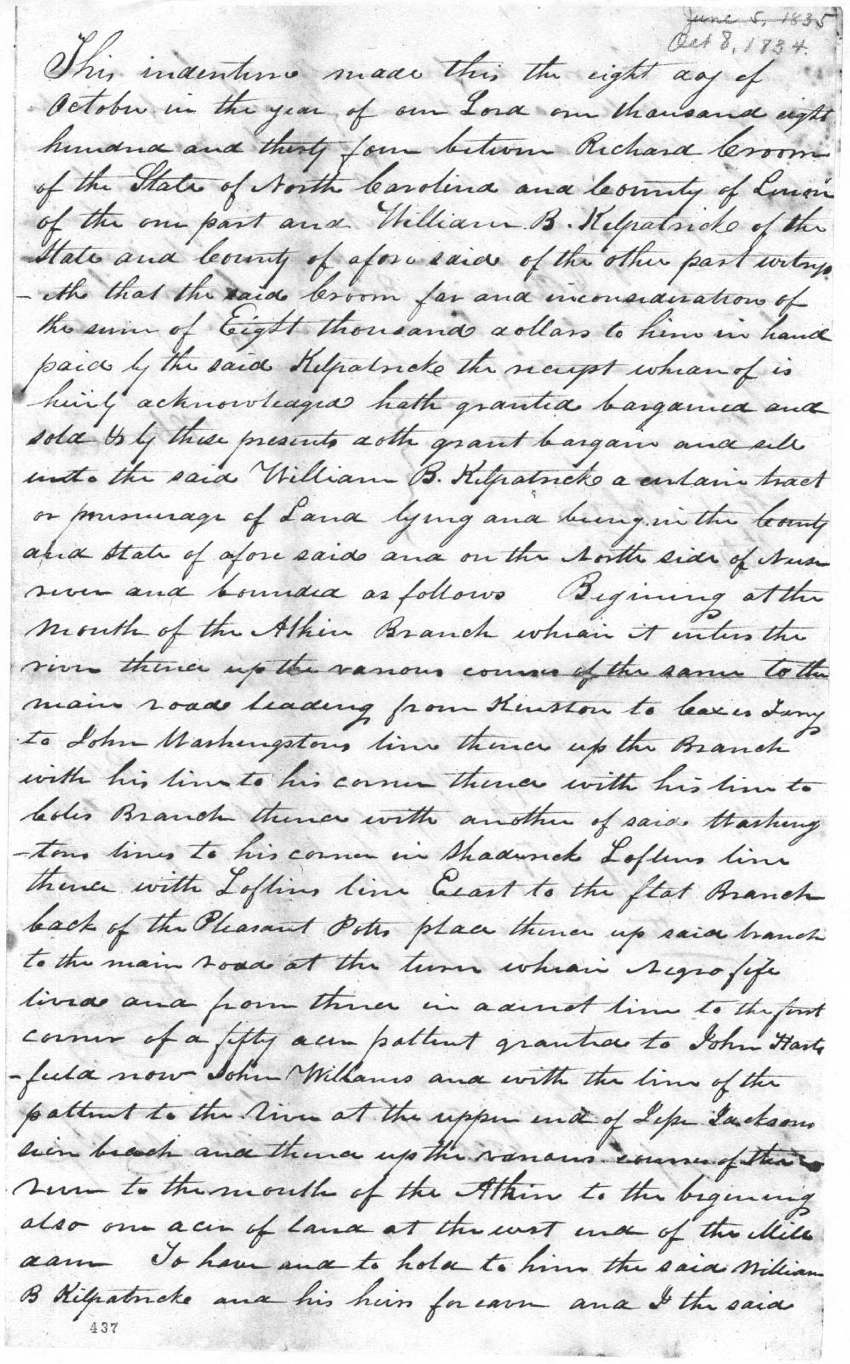 June 5, 1835
Oct 8, 1834.
This indenture made this the eight day of
October in the year of our Lord one thousand eight
hundred and thirty four between Richard Croom
of the State of North Carolina and County of Lenoir
of the one part and William B. Kilpatrick of the
State and County of afore said of the other part witness
-eth that the said Croom for and inconsideration of
the sum of Eight thousand dollars to him in hand
paid by the said Kilpatrick the receipt whearof is
heirby acknowledged hath granted bargained and
sold & by these presents doth grant bargain and sell
unto the said William B. Kilpatrick a certain tract
or of Land lying and being in the County
and State of afore said and on the North side of Neuse
river and bounded as follows Begining at the
Mouth of the Atkin Branch wheair it enters the
river thence up the various courses of the same to the
main road leading from Kinston to Coxes Ferry
to John Washingstons line thence up the Branch
with his line to his corner thence with his line to
Coles Branch thence with another of said Washing
-tons lines to his corner in Shaderick Loftins line
thence with Loftins line East to the flat Branch
back of the Pleasant Potts place thence up said branch
to the main road at the turn wheair Negro fife
lived and from thence in a direct line to the first
corner of a fifty acer pattent granted to John Harts
-field now John Williams and with the line of the
pattent to the River at the upper end of Jesse Jacksons
beach and thence up the various courses of the
river to the mouth of the Atkin to the begining
also one acer of land at the west end of the Mill
dam To have and to hold to him the said William
B Kilpatrick and his heirs forearn and I the said
437